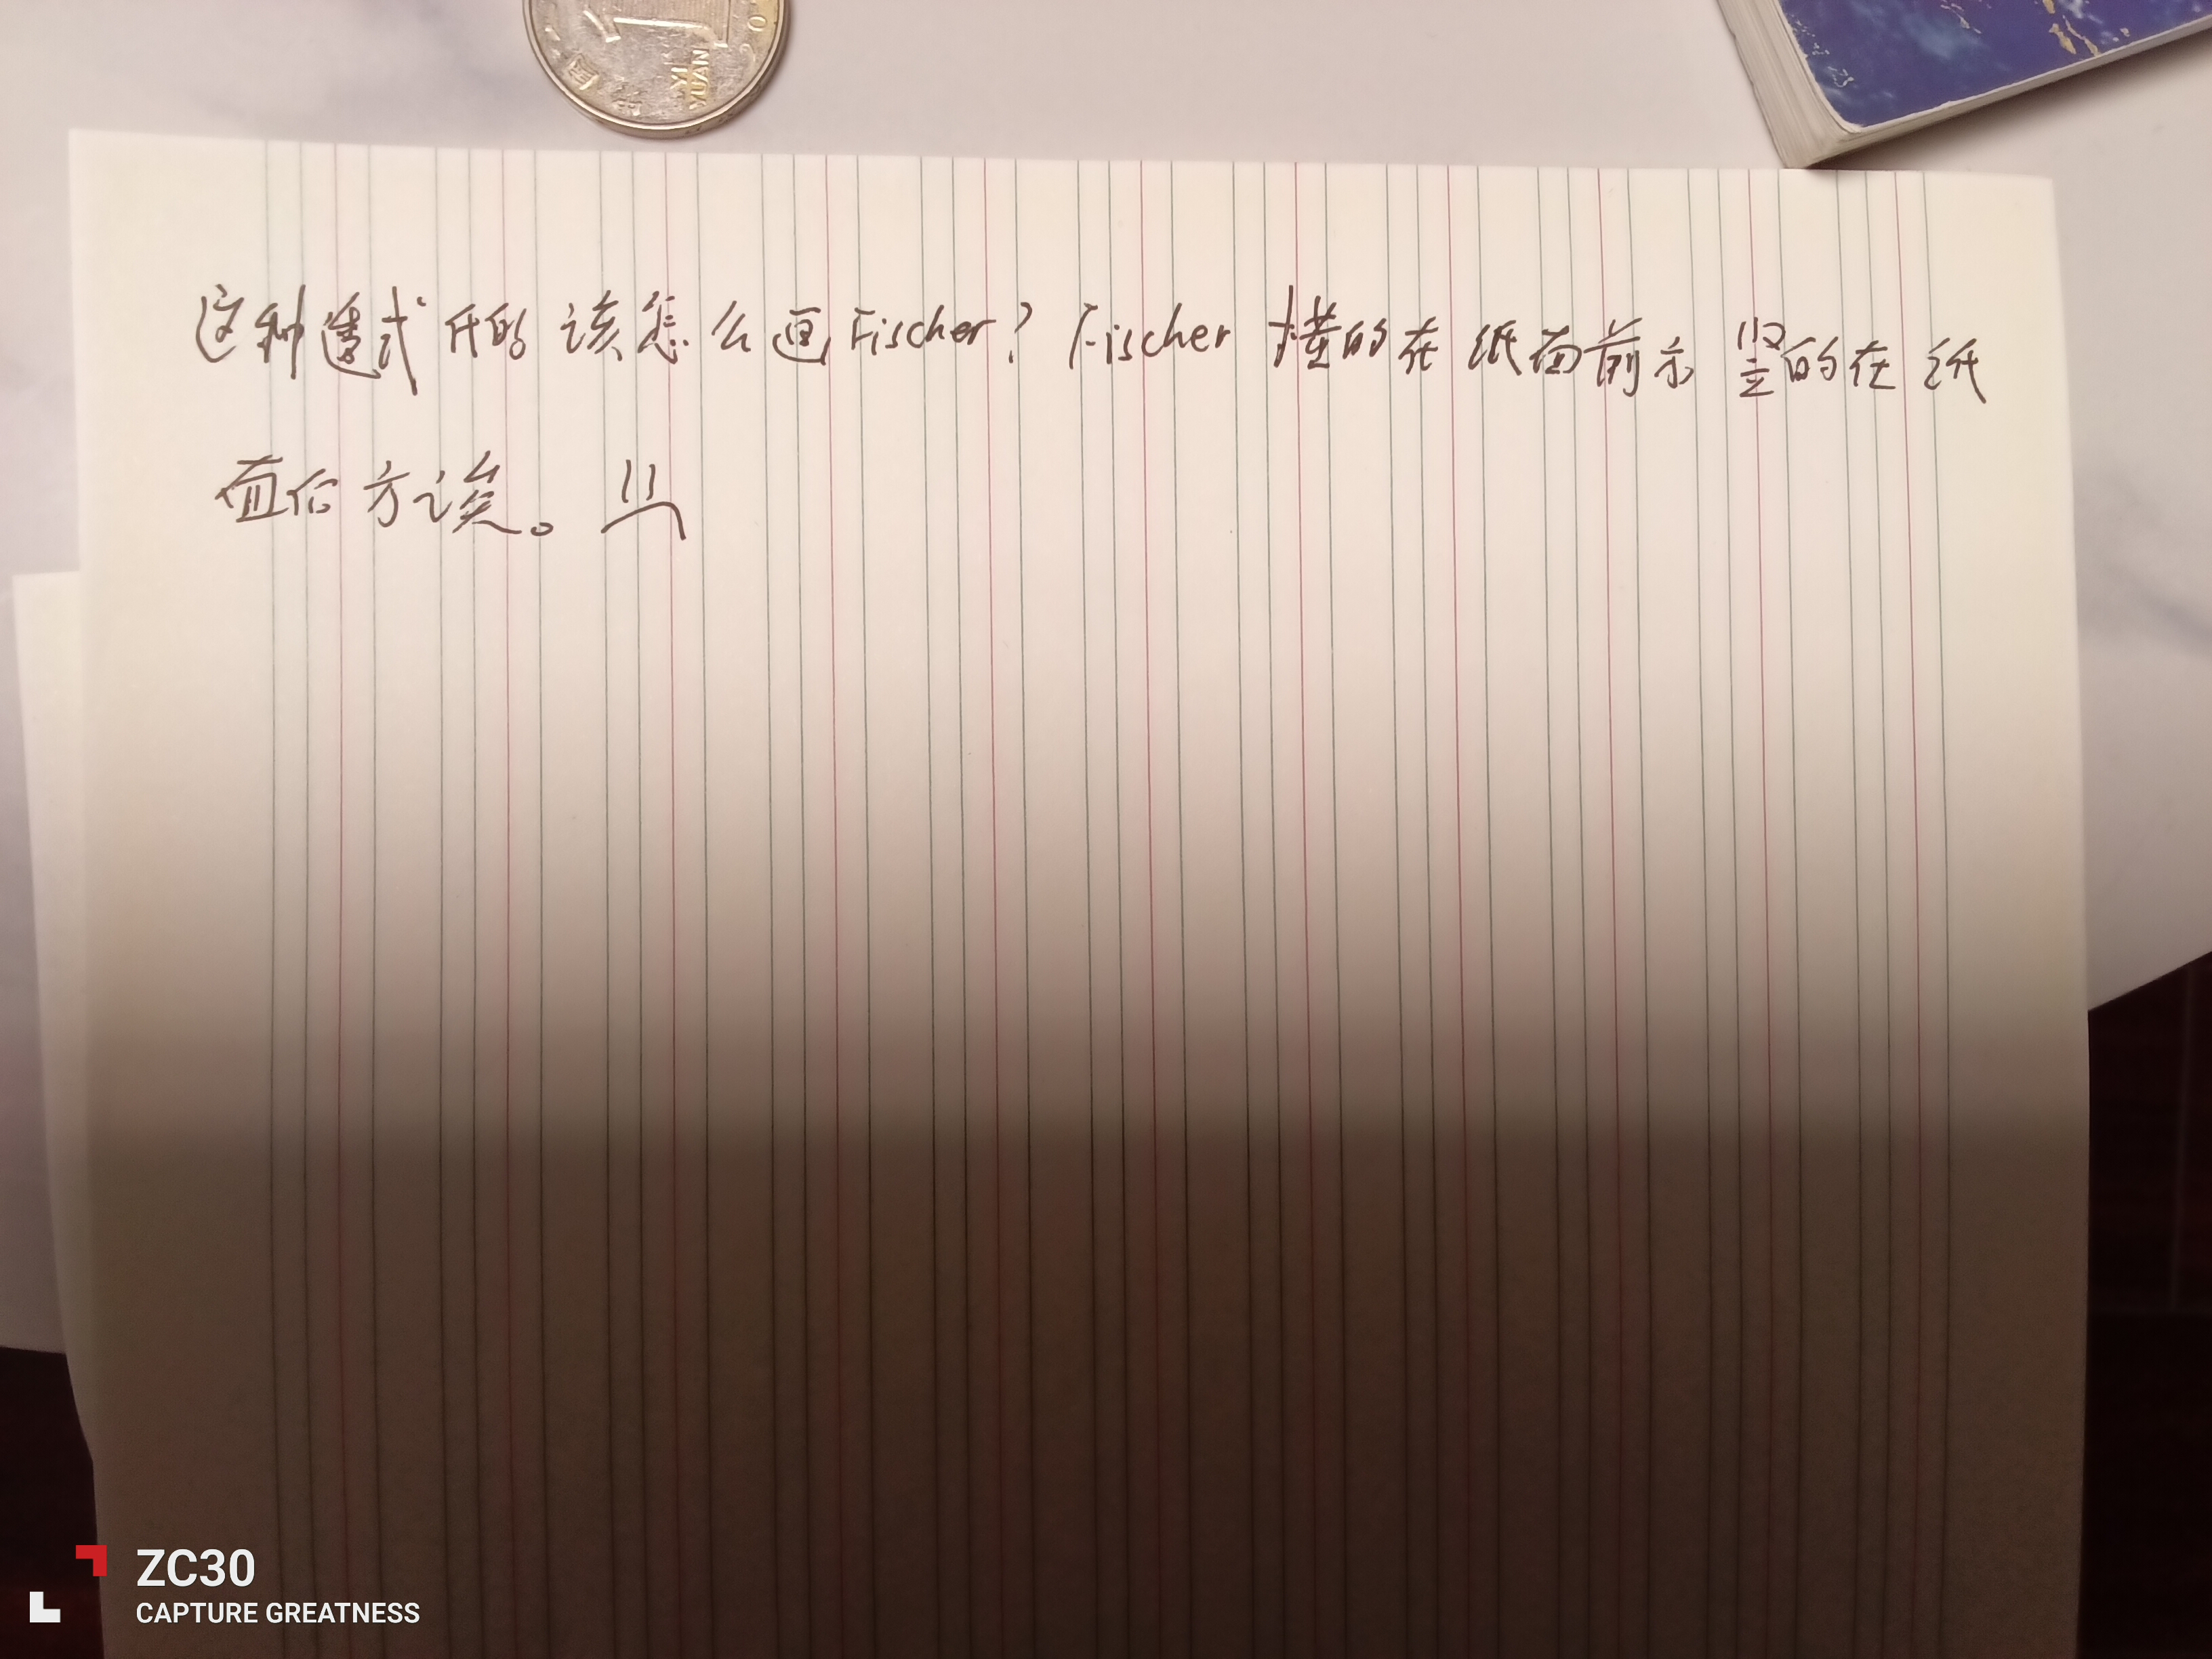 YI YUAN
这种透式开的该怎么画Fischer？Fischer 横的在纸面前方 竖的在纸
面后方诶。
ZC30
CAPTURE GREATNESS